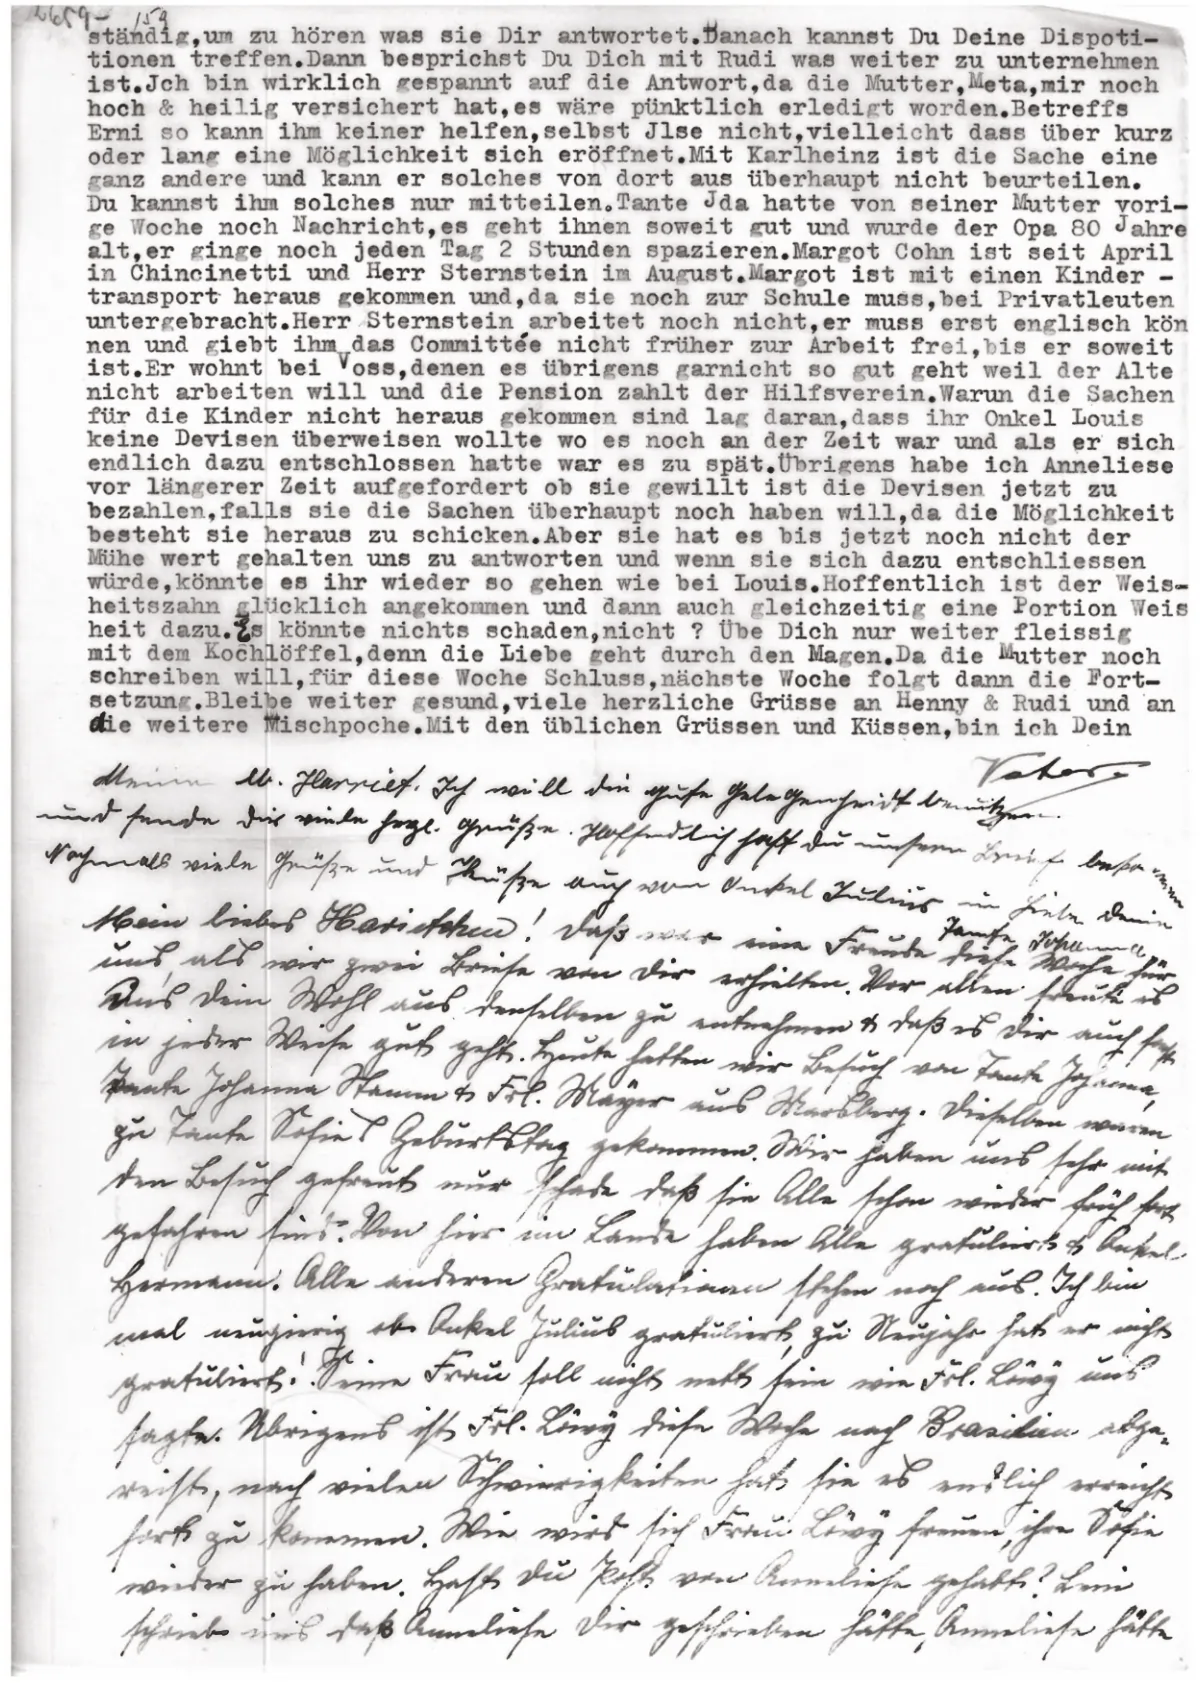 2659- 159
ständig,um zu hören was sie Dir antwortet.Danach kannst Du Deine Dispoti-
tionen treffen.Dann besprichst Du Dich mit Rudi was weiter zu unternehmen
ist.Jch bin wirklich gespannt auf die Antwort,da die Mutter,Meta,mir noch
hoch & heilig versichert hat,es wäre pünktlich erledigt worden.Betreffs
Erni so kann ihm keiner helfen,selbst Jlse nicht,vielleicht dass über kurz
oder lang eine Möglichkeit sich eröffnet.Mit Karlheinz ist die Sache eine
ganz andere und kann er solches von dort aus überhaupt nicht beurteilen.
Du kannst ihm solches nur mitteilen.Tante Jda hatte von seiner Mutter vori-
ge Woche noch Nachricht,es geht ihnen soweit gut und wurde der Opa 80 Jahre
alt,er ginge noch jeden Tag 2 Stunden spazieren.Margot Cohn ist seit April
in Chincinetti und Herr Sternstein im August.Margot ist mit einen Kinder -
transport heraus gekommen und,da sie noch zur Schule muss,bei Privatleuten
untergebracht.Herr Sternstein arbeitet noch nicht,er muss erst englisch kön
nen und giebt ihm das Committée nicht früher zur Arbeit frei,bis er soweit
ist.Er wohnt bei Voss,denen es übrigens garnicht so gut geht weil der Alte
nicht arbeiten will und die Pension zahlt der Hilfsverein.Warun die Sachen
für die Kinder nicht heraus gekommen sind lag daran,dass ihr Onkel Louis
keine Devisen überweisen wollte wo es noch an der Zeit war und als er sich
endlich dazu entschlossen hatte war es zu spät.Übrigens habe ich Anneliese
vor längerer Zeit aufgefordert ob sie gewillt ist die Devisen jetzt zu
bezahlen,falls sie die Sachen überhaupt noch haben will,da die Möglichkeit
besteht sie heraus zu schicken.Aber sie hat es bis jetzt noch nicht der
Mühe wert gehalten uns zu antworten und wenn sie sich dazu entschliessen
würde,könnte es ihr wieder so gehen wie bei Louis.Hoffentlich ist der Weis-
heitszahn glücklich angekommen und dann auch gleichzeitig eine Portion Weis
heit dazu.Es könnte nichts schaden,nicht ? Übe Dich nur weiter fleissig
mit dem Kochlöffel,denn die Liebe geht durch den Magen.Da die Mutter noch
schreiben will,für diese Woche Schluss,nächste Woche folgt dann die Fort-
setzung.Bleibe weiter gesund,viele herzliche Grüsse an Henny & Rudi und an
die weitere Mischpoche.Mit den üblichen Grüssen und Küssen,bin ich Dein
Vater.
Meine lb. Harriet. Ich will die gute Gelegenheidt benutzen
und sende dir viele hrzl. Grüße. Hoffendlich hast du unseren Brief bekommen
Nochmals viele Grüße und Küße auch von Onkel Julius in Liebe deine
Tante Johanna
Mein liebes Harietchen! Daß war eine Freude diese Woche für
uns, als wir zwei Briefe von Dir erhielten. Vor allen freute es
uns Dein Wohl aus denselben zu entnehmen & daß es Dir auch sonst
in jeder Weise gut geht. Heute hatten wir Besuch von Tante Johanna,
Tante Johanna Stamm & Frl. Mayer aus Marsberg. Dieselben waren
zu Tante Sofies Geburtstag gekommen. Wir haben uns sehr mit
den Besuch gefreut nur schade daß sie Alle schon wieder früh fort
gefahren sind. Von hier im Lande haben Alle gratuliert & Onkel
Hermann. Alle anderen Gratulationen stehen noch aus. Ich bin
mal neugierig ob Onkel Julius gratuliert, zu Neujahr hat er nicht
gratuliert! Seine Frau soll nicht nett sein wie Frl. Löwy uns
sagte. Übrigens ist Frl. Löwy diese Woche nach Brasilien abge-
reist, nach vielen Schwierigkeiten hat sie es endlich erreicht
fort zu kommen. Wie wird sich Frau Löwy freuen, ihre Sofie
wieder zu haben. Hast Du Post von Anneliese gehabt?
schrieb uns daß Anneliese Dir geschrieben hätte, Anneliese hätte